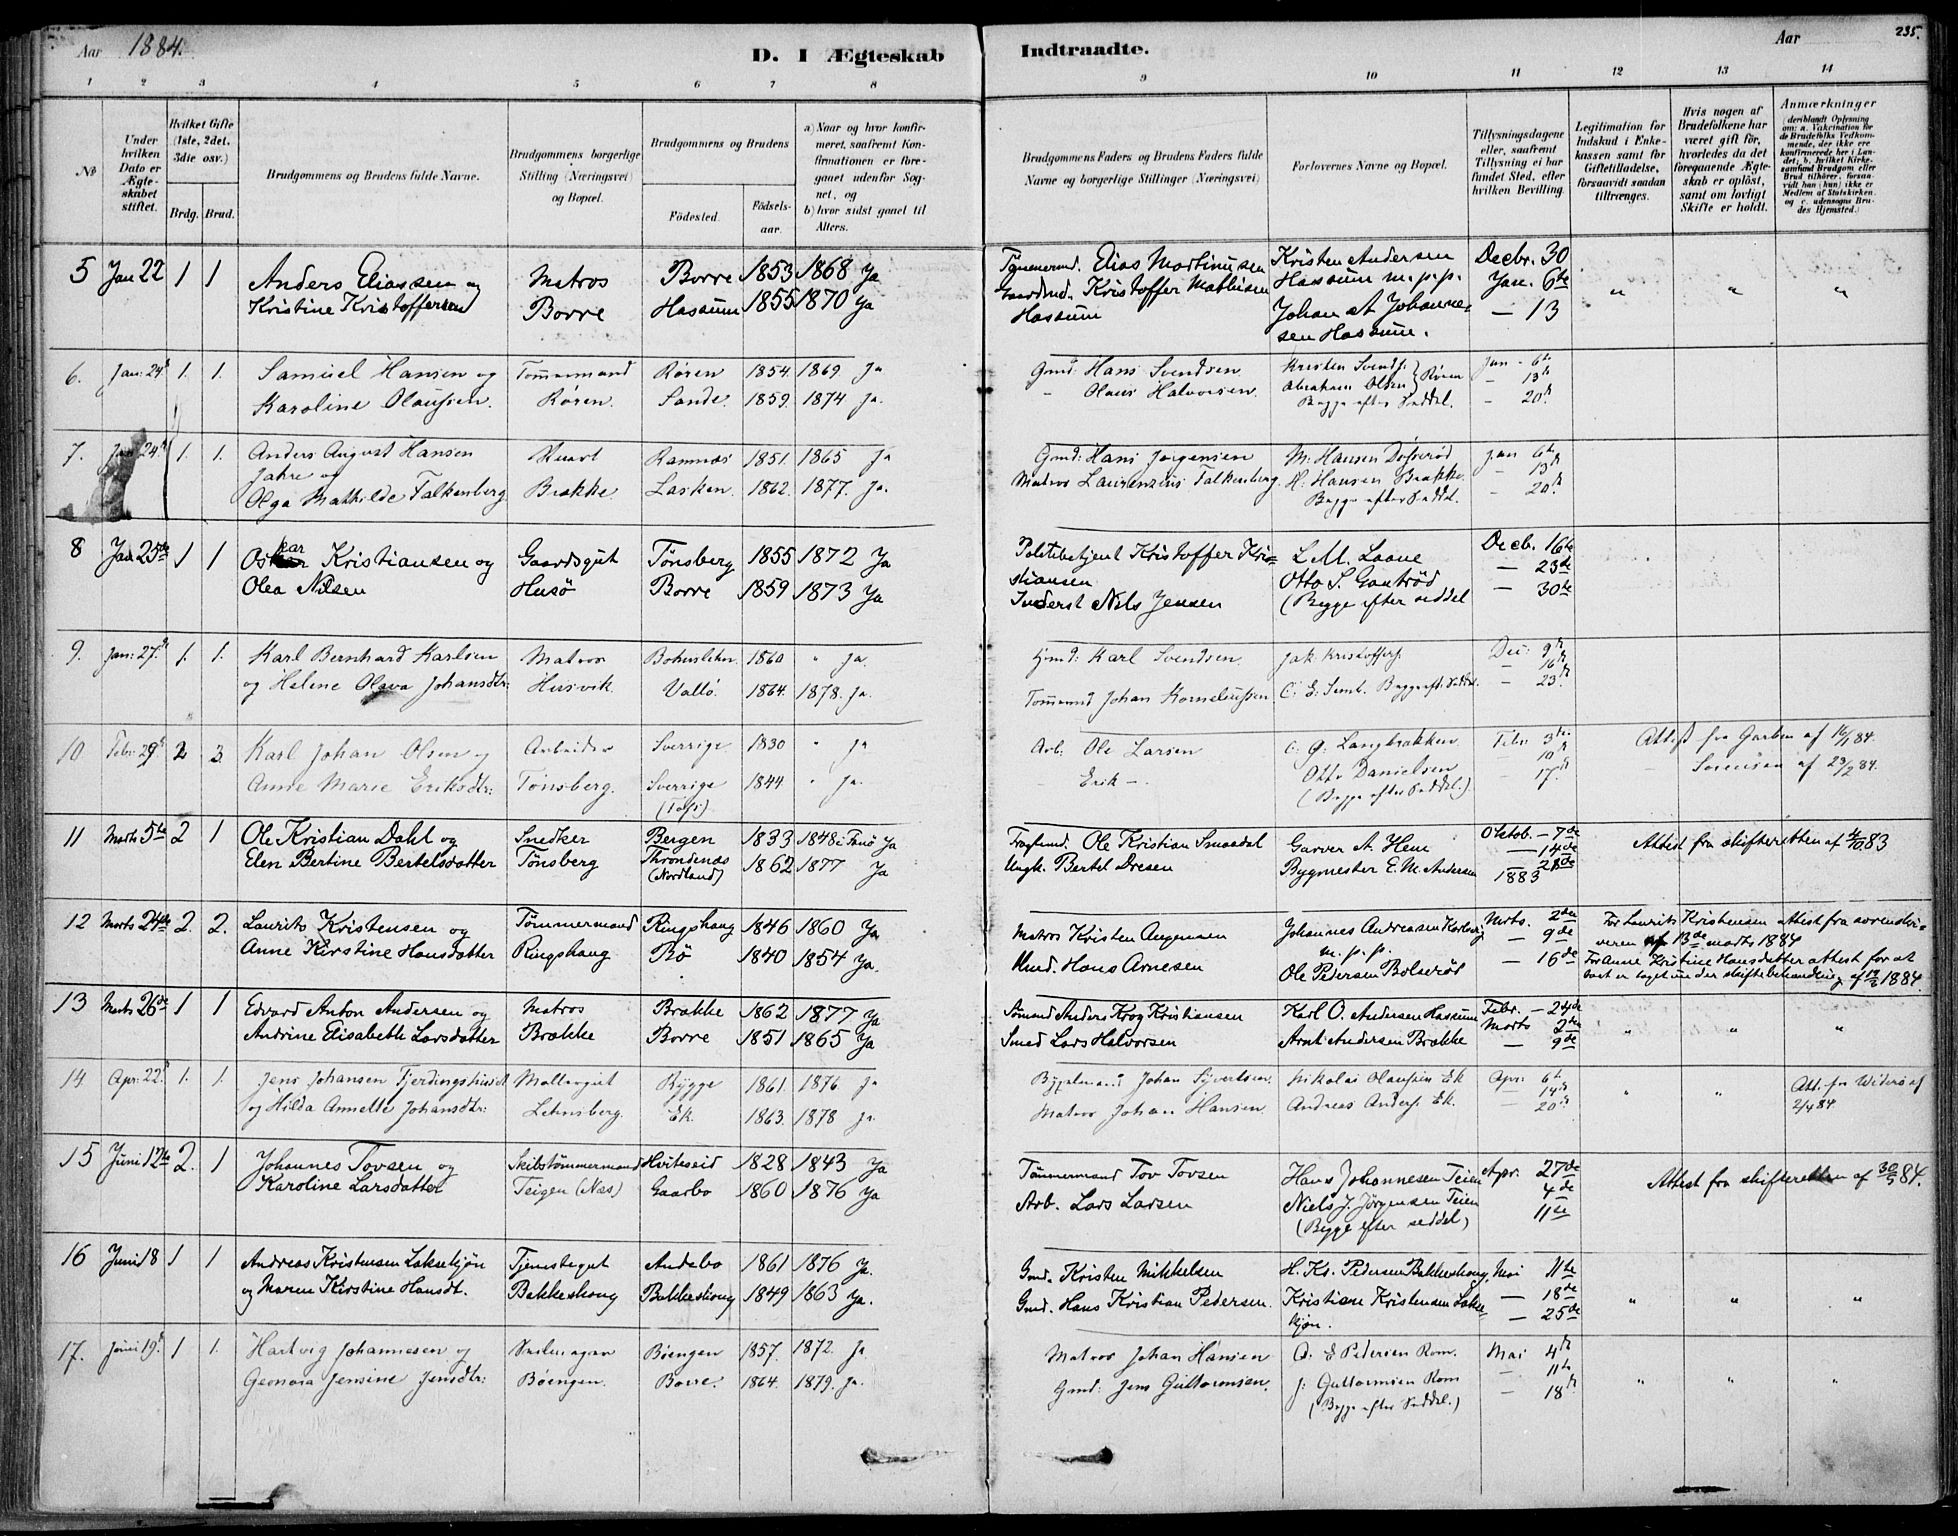 Aar 1884.
D. I Ægteskab Indtraadte.
Aar 235.
1 2 3 4 5 6 7 8 9 10 11 12 13 14
No
Under hvilken Dato er Ægteskabet stiftet.
Hvilket Gifte (1ste, 2det, 3die osv.)
Brdg. Brud.
Brudgommens og Brudens fulde Navne.
Brudgommens borgerlige Stilling (Næringsvei) og Bopæl.
Brudgommens og Brudens
Födested. Födselsaar.
a) Naar og hvor konfirmeret, saafremt Konfirmationen er foregaaet udenfor Sognet, og
b) hvor sidst gaaet til Alters.
Brudgommens Faders og Brudens Faders fulde Navne og borgerlige Stillinger (Næringsvei)
Forlovernes Navne og Bopæl.
Tillysningsdagene eller, saafremt Tillysning ei har fundet Sted, efter hvilken Bevilling.
Legitimation for Indskud i Enkekassen samt for Giftetilladelse, forsaavidt saadan tiltrænges.
Hvis nogen af Brudefolkene har været gift før, hvorledes da det foregaaende Ægteskab er opløst, samt om lovligt Skifte er holdt.
Anmærkninger (deriblandt Oplysning om: a. Vakcination for de Brudefolks Vedkommende, der ikke ere konfirmerede her i Landet; b. hvilket Kirkesamfund Brudgom eller Brud tilhører, forsaavidt han (hun) ikke er Medlem af Statskirken. og c. udensogns Brudes Hjemsted.)
5 Jan 22 1 1 Anders Eliassen og Matros Borre 1853 1868 Ja Elias Martinusen Kristen Andersen Decbr. 30
Kristine Kristoffersen Borre Hassum 1855 1870 Ja Gaardmd. Kristoffer Mathisen Hassum m.p.p. Jan. 6te " " "
Hassum Johan A Johannesen Hassum. — 13
6. Jan: 24d 1. 1. Samuel Hansen og Tømmermand Røren 1854. 1869 Ja Gmd: Hans Svendsen Kristen Svends. Jan - 6te
Karoline Olaussen. Røren. Sande. 1859. 1874 Ja. - Olaus Halvorsen. Abraham Olsen } Røren - 13de
Begge efter Seddel. - 20d.
7. 24d 1. 1. Anders August Hansen Ramnæs 1851. 1865 Ja Gmd: Hans Jørgensen M. Hansen Jan 6te
Jahre og - 13d
Olga Mathilde Falkenberg Brække Lasken. 1862. 1877. Ja. Matros Laurenzius Falkenberg. H. Hansen Brække - 20d
Begge efter Seddel.
8 Jan 25de 1 1 Oskar Kristiansen og Gaardsgut Tønsberg 1855 1872 Ja Politibetjent Kristoffer Kristiansen L. M. Laane Decb. 16te
Olea Nilsen Husö Borre 1859 1873 Ja Inderst Niels Jensen Otto S. Gantröd — 23de
(Begge efter seddel — 30te
9. Jan: 27d 1. 1. Karl Bernhard Karlsen Matros Bohuslehn 1860 " Ja. Gmd: Karl Svendsen. Jak. Kristoffers. Dec: 9d
og Helene Olava Johansdtr: Husvik. Vallö. 1864. 1878. Ja. Tømmermd Johan Korneliussen C. E. Semb. Begge eft. Seddel. - 16d
- 23d
10 Febr. 29d 2 3. Karl Johan Olsen og Arbeider Sverrige 1830 " Ja Arb. Ole Larsen C. G. Langbrækken. Febr 3die Attest fra Garben af 16/1 84.
Anne Marie Eriksdtr: Tönsberg. Sverrige 1844 " Ja. Erik -. Otto Danielsen - 10d Sorensen af 23/2 84.
(Begge efter Seddel.) - 17d
11 Marts 5te 2 1 Ole Kristian Dahl og Snedker Bergen 1833 1848 Ja Ole Kristian Smaadal Garver A. Hem Oktob. — 7de Attest fra skifteretten af 4/10 83
Elen Bertine Bertelsdatter Tønsberg Throndenæs (Nordland) 1862 1877 Ja Ungk. Bertel Dresen Bygmester E. M. Andersen — 14de
1883 28de
12 Marts 24de 2. 2. Laurits Kristensen og Tømmermand Ringshaug 1846 1860 Ja Matros Kristen Angensen Johannes Andreasen Karlsvig Marts. 2den For Laurits Kristensen attest fra sorenskriveren af 13de marts 1884
Anne Kirstine Hansdatter Ringshaug Bö 1840 1854 Ja. Hans Arnesen m.p.p. — 9de For Anne Kristine Hansdatter attest for at
Ole Pedersen Bolsröd — 16de boet er taget under skiftebehandling af 1884.
13 Marts 26de 1 1 Edvard Anton Andersen og Matros Brække 1862 1877 Ja Sømand Anders Krog Kristiansen Karl O. Andersen Hassum Febr. — 24de
Andrine Elisabeth Larsdatter Brække Borre 1851 1865 Ja Smed Lars Halvorsen Arnt Andersen Brække Marts 2den " " "
— 9de
14 Apr: 22d 1. 1. Jens Johansen Fjerdingshusdt Møllergut Rygge 1861. 1876 Ja Johan Syvertsen. Nikolai Olaussen Ek Apr: 6te Att. fra Widerö af
og Hilda Annette Johansdtr: Lehnsberg. Ek. 1863. 1878 Ja. Matros Johan Hansen. Andreas Anders. Ek. - 14de " " 2/4 84.
- 20d
15 Juni 12te 2. 1 Johannes Tovsen og Skibstømmermand Hviteseid 1828 1843 Ja Tømmermand Tov Tovsen Hans Johannesen Teien Apr. 27de Attest fra skifteretten af 30/5 84.
Karoline Larsdatter Teigen (Næs) Gaarbo 1860 1876 Ja Arb. Lars Larsen Niels J. Jörgensen Teien 4de
(Begge efter seddel) 11te
16 Juni 18 1 1 Andreas Kristensen Laksekjön Tjenestegut Andebo 1861 1876 Ja. Gmd. Kristen Mikkelsen H. Kr. Pedersen Bakkeshaug. Mai 11te
og Maren Kirstine Hansdt. Bakkeshaug Bakkeshaug 1849 1863 Ja. Gmd. Hans Kristian Pedersen. Kristian Kristensen Laksekjön. — 18de " " "
— 25de
17. Juni 19d 1 1. Hartvig Johannesen og Böengen 1857. 1872. Ja Matros Johan Hansen O. E Pedersen Rom. Mai 4d
Geonora Jensine Jensdtr: Böengen. Borre. 1864. 1879. Ja. Gmd: Jens Guttormsen. J: Guttormsen Rom - 11te " " "
(Begge efter Seddel.) — 18d